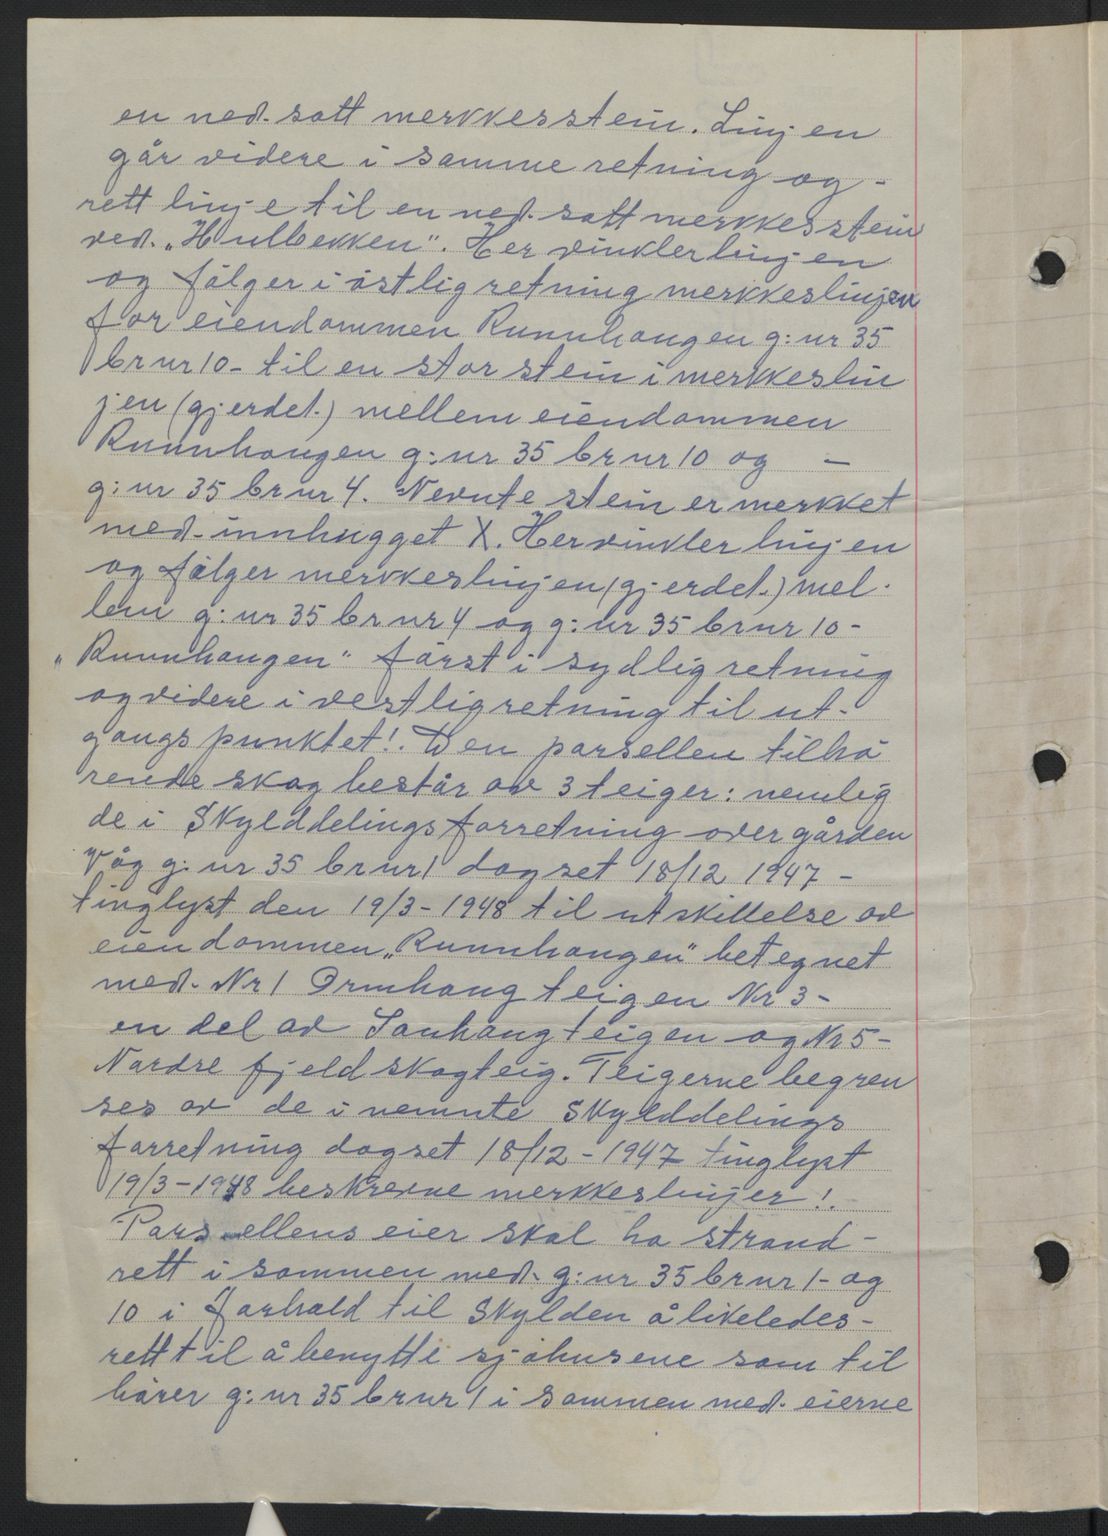 en ned-satt merkkesstein. Linjen
går videre i samme retning og -
rett linje til en ned-satt merkkesstein
ved. „Hulbekken". Her vinkler linjen
og følger i østlig retning merkkeslinjen
for eiendommen Runnhaugen g: nr 35
br nr 10- til en stor stein i merkkeslin
jen (gjerdet.) mellem eiendommen
Runnhaugen g: nr 35 br nr 10 og -
g: nr 35 br nr 4. Nevnte stein er merkket
med-innhugget X. Her vinkler linjen
og følger merkkeslinjen (gjerdet.) mel-
lem g: nr 35 br nr 4 og g: nr 35 br nr 10-
„Runnhaugen" først i sydlig retning
og videre i vestlig retning til ut-
gangspunktet!. Den parsellen tilhø
rende skog består av 3 teiger: nemlig
de i Skylddelingsforretning over gården
Våg g: nr 35 br nr 1 dagset 18/12 1947 -
tinglyst den 19/3-1948 til utskillelse av
eiendommen „Runnhaugen" betegnet
med- Nr 1 Ormhaugteigen Nr 3-
en del av Sauhaugteigen og Nr 5-
Nordre fjeldskogteig. Teigerne begren
ses av de i nemnte Skylddelings
forretning dagset 18/12-1947 tinglyst
19/3-1948 beskrevne merkkeslinjer!.
Parsellens eier skal ha strand-
rett i sammen med- g: nr 35 br nr 1- og
10 i forhold til Skylden å likeledes-
rett til å benytte sjøhusene som til
hører g: nr 35 br nr 1 i sammen med- eierne